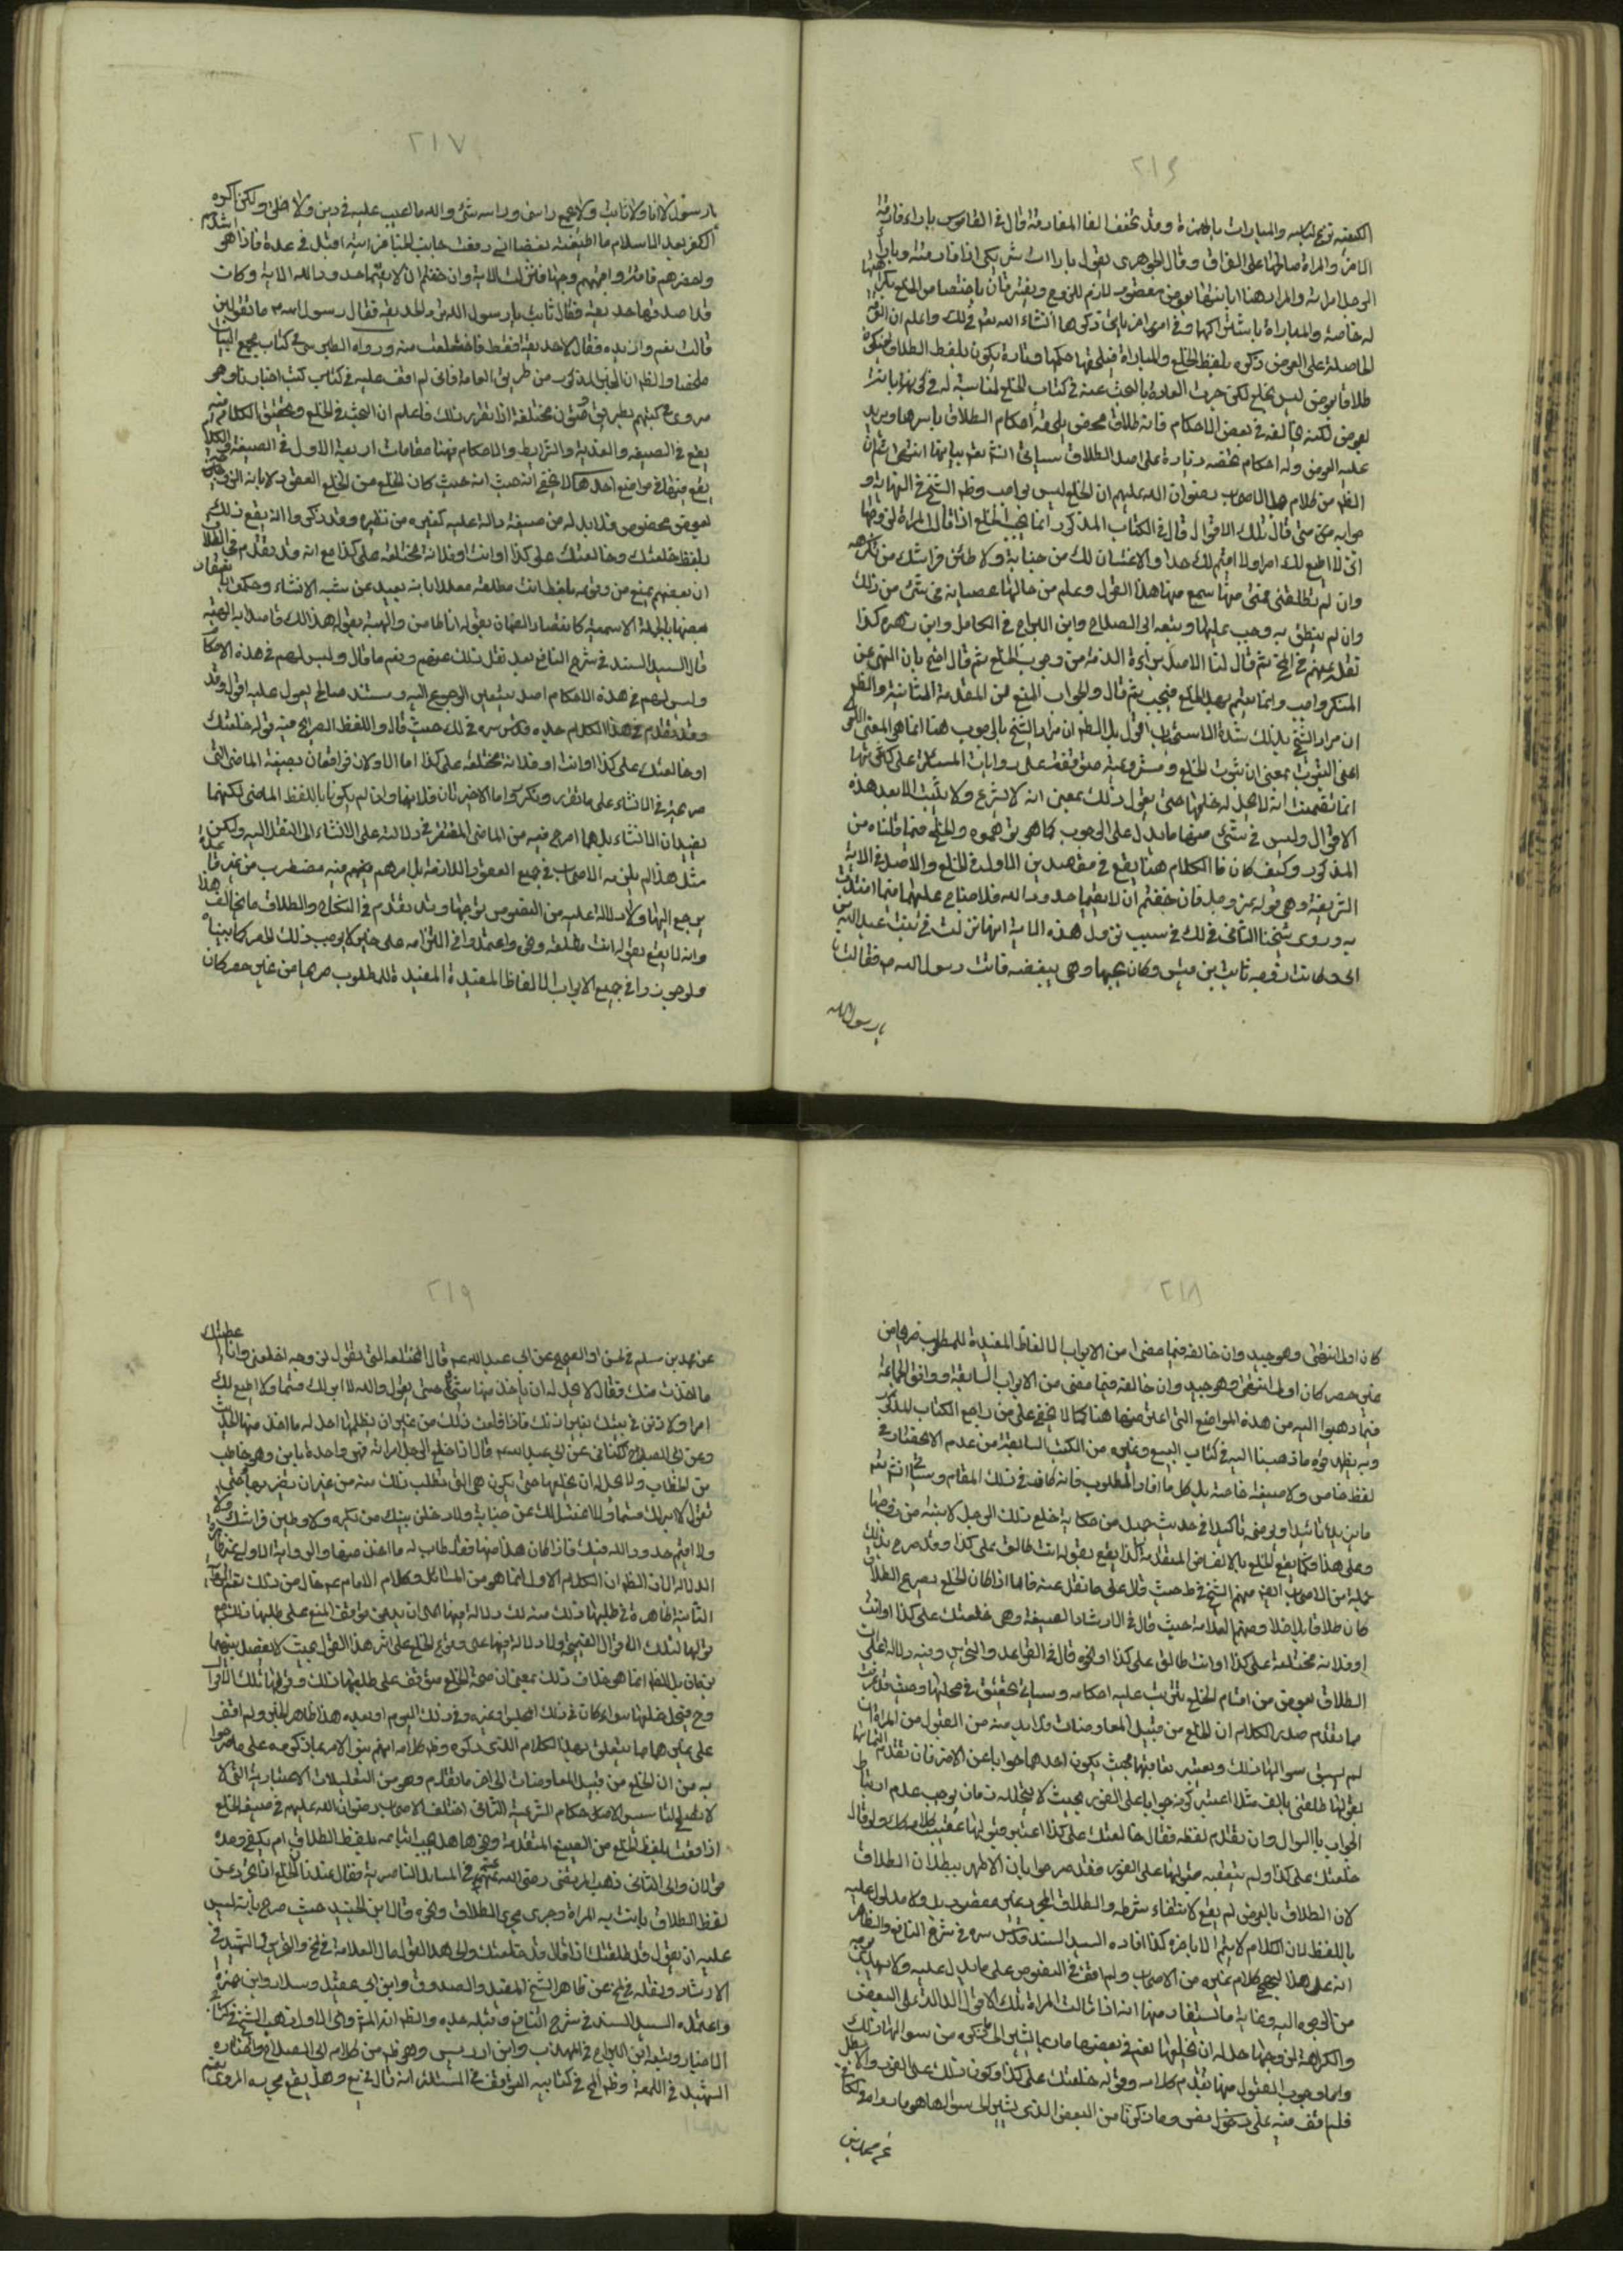 ٢١٦
الكفيته توبع لباسه والمبارات بالهمزة وقد تخفف الفا المفارقة قال في القاموس باراه فارقه
المرأة صالحها على الفراق وقال الجوهري يقول بارات شريكي اذا فارقته وبارا
الرجل امراته والمراد هنا ابانتها بعوض مقصود لازم للزوج ويفترقان باختصاص الخلع
له خاصة والمباراة باشتراكها وفي امور اخر ياتي ذكرها انشاء الله تعم في ذلك واعلم ان
الحاصلة على العوض ذكره بلفظ الخلع والمباراة فيلحقها حكمها وتارة يكون بلفظ الطلاق فيكون
طلاقا بعوض ليس بخلع لكن جرت العادة بالبحث عنه في كتاب الخلع لمناسبته له في كونه ابانة
بعوض لكنه يخالفه في بعض الاحكام فانه طلاق محض يلحقه احكام الطلاق باسرها ويزيد
عليه العوض وله احكام تختصه زيادة على اصل الطلاق سياتي انشم تعم بيانها انتهى ثم ان
الظم من كلام هذا الاصحاب رضوان الله عليهم ان الخلع ليس بواجب وظم الشيخ في النهاية
جوابه متى قال تلك الاقوال قال في الكتاب المذكور انما يجب الخلع اذا قالت المراة لزوجها
اني لا اطيع لك امرا ولا اقيم لك حدا ولا اغتسل لك من جنابة ولا طئن فراشك من تكرهه
وان لم تطلقني فمتى سمع منها هذا القول وعلم من حالها عصيانه في شئ من ذلك
وان لم ينطق به وجب عليها وتبعه ابي الصلاح وابن البراج في الكامل وابن زهره كذا
نقل عنهم في المخ ثم قال لنا الاصل براءة الذمة من وجوب الخلع ثم قال احتج بان النهي عن
المنكر واجب وانما يتم بهذا الخلع فيجب ثم قال والجواب المنع من المقدمة الثانية والظم
ان مراد الشيخ بذلك شدة الاستحباب اقول بل الظم ان مراد الشيخ بالوجوب هنا انما هو المعنى اللغوي
اعني الثبوت بمعنى ان ثبوت الخلع ومشروعيته متوقفة على روايات المسئلة على كثرتها
انما تضمنت انه لا يحل له خلعها حتى يقول ذلك بمعنى انه لا يشرع ولا يثبت الا بعد هذه
الاقوال وليس في شئ منها ما يدل على الوجوب كما هو توهموه والحمله فيما قلناه من
المذكور وكيف كان فالكلام هنا يقع في مقصدين الاول في الخلع والاصل في الاية
الشريفة وهي قوله عز وجل فان خفتم ان لا يقيما حدود الله فلا جناح عليهما فيما افتدت
به وروى شيخنا الثاني في لك في سبب نزول هذه الاية انها نزلت في بنت عبد الله بن
ابي كانت زوجه ثابت بن قيس وكان يحبها وهي تبغضه فاتت رسول الله ص فقالت
يا رسول الله
٢١٧
يا رسول لا انا ولا ثابت ولا يجمع راسي وراسه شئ والله ما اعيب عليه في دين ولا خلق ولكن اكره
الكفر بعد الاسلام ما اطيقه بغضا اني رفعت جانب الخبا فرايته اقبل في عدة فاذا هو اشدهم
واقصرهم قامة واقبحهم وجها فنزلت الاية وان خفتم ان لا يقيما حدود الله الاية وكان
قد اصدقها حديقة فقال ثابت يا رسول الله ترد الحديقة فقال رسول الله ص ما تقولين
قالت نعم وازيده فقال لا حديقة فقط فاختلعت منه ورواه الطبرسي في كتاب مجمع البيان
ملخصا والظم ان الخبر المذكور من طريق العامة فاني لم اقف عليه في كتاب كتب اخبارنا وهو
مروي في كتبهم بطرق ومتون مختلفة اذا تقرر ذلك فاعلم ان البحث في الخلع وتحقيق الكلام فيه
يقع في الصيغة والفدية والشرايط والاحكام فهنا مقامات اربعة الاول في الصيغة والكلام
يقع فيها في مواضع احدها لا يخفى انه حيث كان الخلع من العقود لانه
بعوض مخصوص فلا بد له من صيغة دالة عليه كغيره من نظيره وقد ذكروا انه يقع بذلك
بلفظ خلعتك وخالعتك على كذا او انت او فلانة مختلعة على كذا مع انه قد تقدم في الطلاق
ان بعضهم يمنع من وقوعه بلفظ انت مطلقة معللا بانه بعيد عن شبه الانشاء وحكموا
بعضها بالجملة الاسمية كانعقاد الضمان بقوله انا ضامن والهبة بقوله هذا لك قاصدا به الهبة
قال السيد السند في شرح النافع بعد نقل ذلك عنهم ونعم ما قال وليس لهم في هذه الاحكام
وليس لهم في هذه الاحكام اصل يتعين الرجوع اليه ومستند صالح يعول عليه اقول وقد
وقد تقدم في هذا الكلام جده قدس سره في لك حيث قال واللفظ الصريح فيه قوله خلعتك
او خالعتك على كذا او انت او فلانة مختلعة على كذا اما الاولان فواقعان بصيغة الماضي التي
صريحة في الانشاء على ما تقرر وتكرر واما الاخيرتان فلانهما وان لم يكونا باللفظ الماضي لكنهما
يفيدان الانشاء بل هما اصرح فيه من الماضي المفتقر في دلالته على الانشاء الى النقل اليه ولكن
مثل هذا لم يلتزمه الاصحاب في جميع العقود اللازمة بل امرهم فيه مضطرب من غير قاعدة
يرجع اليها ولا دلالة عليه من النصوص يوجبها وقد تقدم في النكاح والطلاق ما يخالف هذا
وانه لا يقع بقوله انت مطلقة ونحو واعتمدوا في التزامه على خبر لا يوجب ذلك الحصر كما بيناه
ولو جوزوا في جميع الابواب الالفاظ المفيدة للمطلوب صريحا من غير حصر كان
٢١٨
كان اولى انتهى وهو جيد وان خالفه فيما مضى من الابواب الالفاظ المفيدة للمطلوب صريحا من
غير حصر كان اولى انتهى وهو جيد وان خالفه فيما مضى من الابواب السابقة ووافق الجماعة
فيما ذهبوا اليه من هذه المواضع التي اعترضها هنا كما لا يخفى على من راجع الكتاب المذكور
وبه يظهر قوة ما ذهبنا اليه في كتاب البيع وغيره من الكتب السابقة من عدم الانحصار في
لفظ خاص ولا صيغة خاصة بل كل ما افاد المطلوب فانه كاف في ذلك المقام وسياتي انشم تعم
ما يزيده تائيدا ويوضحه تاكيدا في حديث جميل من حكاية خلع تلك الرجل لابنته من زوجها
وعلى هذا فكما يقع الخلع بالالفاظ المتقدمة كذا يقع بقوله انت طالق على كذا وقد صرح بذلك
جملة من الاصحاب ايضا منهم الشيخ في ط حيث قال على ما نقل عنه فاما اذا كان الخلع بصريح الطلاق
كان طلاقا بلا خلاف ومنهم العلامة حيث قال في الارشاد الصيغة وهي خلعتك على كذا او انت
او فلانة مختلعة على كذا او انت طالق على كذا ونحوه قال في القواعد والتحرير وفيه دلالة على ان
الطلاق بعوض من اقسام الخلع يترتب عليه احكامه وسياتي تحقيق في محلها وحيث قد عرفت
مما تقدم صدر الكلام ان الخلع من قبيل المعاوضات فلا بد فيه من القبول من المراة ان
لم يسبق سوالها ذلك ويعتبر تعاقبهما بحيث يكون احدهما جوابا عن الاخر فان تقدم التماسها
بقولها طلقني بالف مثلا اعتبر كونه جوابا على الفور بحيث لا يتخلله زمان يوجب عدم ارتباط
الجواب بالسوال وان تقدم لفظه فقال خالعتك على كذا اعتبر قبولها عقيب كلامه كك ولو قال
خلعتك على كذا ولم يتعقبه قبولها على الفور فقد صرحوا بان الاظهر بطلان الطلاق
لان الطلاق بالعوض لم يقع لانتفاء شرطه والطلاق المجرد غير مقصود بل ولا مدلول عليه
باللفظ لان الكلام لا يتم الا باخره كذا افاده السيد السند قدس سره في شرح النافع والظاهر
انه على هذا يحمل كلام غيره من الاصحاب ولم اقف في النصوص على ما يدل عليه ولا
من الوجوه اليه وغاية ما يستفاد منها انه اذا قالت المراة تلك الاقوال الدالة على البغض
والكراهة لزوجها حل له ان يخلعها نعم في بعضها ما ربما يشير الى ما ذكره من سوالها ذلك
واما وجوب القبول منها بتقدم كلامه وقوله خلعتك على كذا وكون ذلك على الفور والا بطل
فلم اقف فيه على نص وما ذكرنا من البعض الذي يشير الى سوالها هو ما رواه في الكافي
عن محمد بن
٢١٩
عن محمد بن مسلم في الحسن او الصحيح عن ابي عبد الله عم قال المختلعة التي تقول لزوجها اخلعني وانا اعطيك
ما اخذت منك فقال لا يحل له ان ياخذ منها شئ حتى يقول والله لا ابر لك قسما ولا اطيع لك
امرا ولاذنن في بيتك بغير اذنك فاذا فعلت ذلك من غير ان يعلمها حل له ما اخذ منها الحديث
وعن ابي الصباح الكناني عن ابي عبد الله عم قال اذا خلع الرجل امراته فهي واحدة باين وهو خاطب
من الخطاب ولا يحل له ان يخلعها حتى يكون هي التي تطلب ذلك منه من غير ان يضر بها وحتى
تقول لا ابر لك قسما ولا اغتسل لك من جنابة ولادخلن بيتك من تكره ولاوطين فراشك
ولا اقيم حدود الله فيك فاذا كان هذا منها فقد طاب له ما اخذ منها والرواية الاولى غير ظاهرة
الدلالة لان الظم ان الكلام الاول انما هو من السائل وكلام الامام عم خال من ذلك نعم الرواية
الثانية ظاهرة في طلبها ذلك منه لك دلالة فيها على ان يدعى توقف المنع على طلبها ذلك مع
قولها لتلك الاقوال القبيحة ولا دلالة فيها على وقوع الخلع على اثر هذا القول بحيث لا يفصل بينهما
زمان بل الظم انما هو خلاف ذلك بمعنى ان صحة الخلع متوقف على طلبها ذلك وقولها تلك الاقوال
وح فيحل خلعها سواء كان في ذلك المجلس او غيره وفي ذلك اليوم او بعده هذا ظاهر الخبر ولم اقف
على غيرهما مما يتعلق بهذا الكلام الذي ذكره وظم كلامه انهم بنوا الامر بما ذكروه على ما صرحوا
به من ان الخلع من قبيل المعاوضات الى اخر ما تقدم وهو من التعليلات الاعتبارية التي لا
لا تصلح لتاسيس الاحكام الشرعية الثاني اختلف الاصحاب رضوان الله عليهم في صيغة الخلع
اذا وقعت بلفظ الخلع من الصيغ المتقدمة ونحوها هل يجب اتباعه بلفظ الطلاق ام يكفي وحده
قولان والى الثاني ذهب المرتضى رضي الله عنهم في المسايل الناصرية فقال عندنا ان الخلع اذا تجرد عن
لفظ الطلاق بانت به المراة وجرى مجرى الطلاق ونحوه قال ابن الجنيد حيث صرح بانه ليس
عليه ان يقول قد طلقتك اذا قال قد خلعتك والى هذا القول مال العلامة في لخ والتحرير والشهيد في
الارشاد ونقله في لخ عن ظاهر الشيخ المفيد والصدوق وابن ابي عقيل وسلار وابن حمزة
واعتمده السيد السند في شرح النافع وقبله جده والظم انه الم والى الاول ذهب الشيخ في كتابي
الاخبار وتبعه ابن البراج في المهذب وابن ادريس وهو ظم من كلام ابي الصلاح واختاره
الشهيد في اللمعة وظم المح في كتابيه التوقف في المسئلة انه قال في يع وهل يقع بمجرده المروي نعم